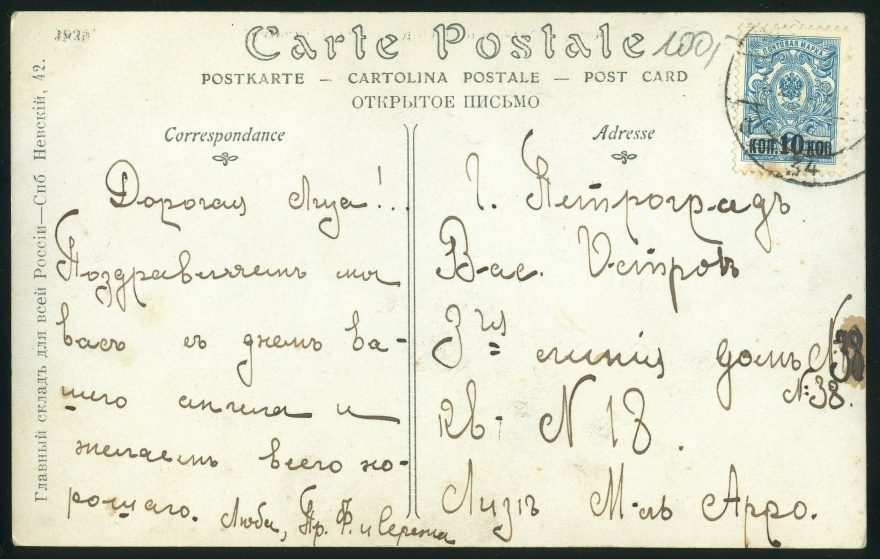 Carte Postale 100,-
POSTKARTE – CARTOLINA POSTALE – POST CARD
ОТКРЫТОЕ ПИСЬМО
Correspondance
Adresse
ПОЧТОВАЯ МАРКА
КОП. 10 КОП.
34
Главный складъ для всей Россіи—Спб Невскій, 42.
Дорогая Лиза!..
Поздравляемъ мы
васъ съ днемъ ва-
шего ангела и
желаемъ всего хо-
рошаго.
Люба, Пр. Ф. и Сережа
Г. Петроградъ
Вас. Островъ
3ья линія домъ № 38
№: 38.
кв. N 18.
Лизѣ М-ль Арро.